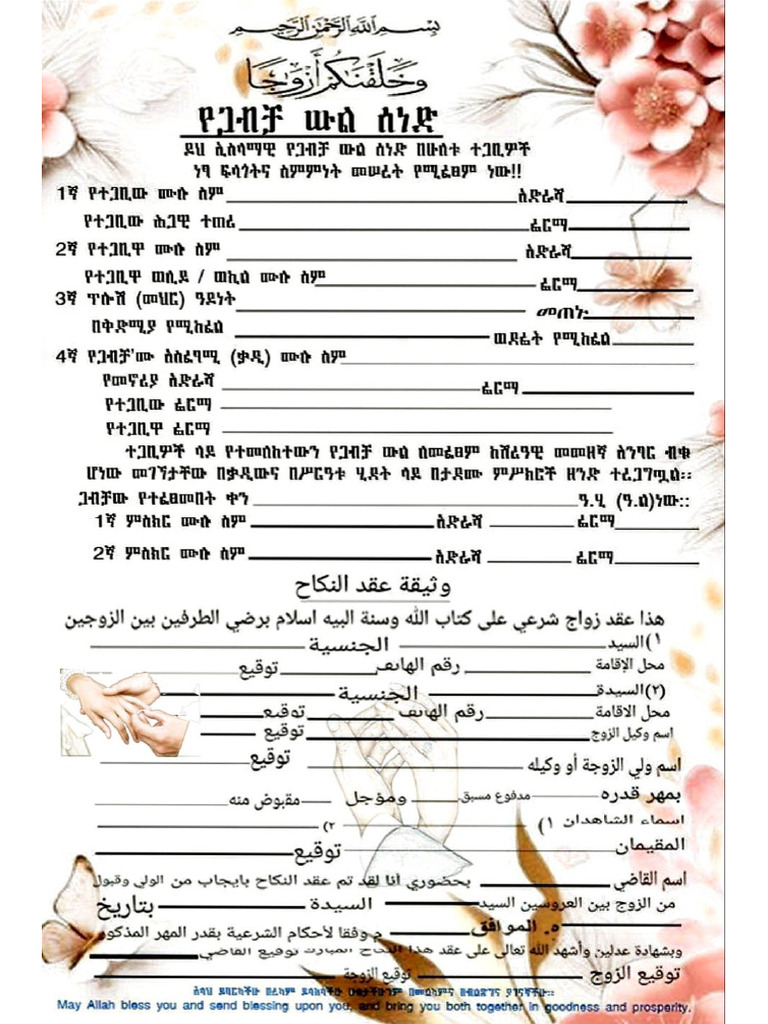 بِسْمِ اللَّهِ الرَّحْمَٰنِ الرَّحِيمِ
وَخَلَقْنَاكُمْ أَزْوَاجًا
የጋብቻ ውል ሰነድ
ይህ ኢስላማዊ የጋብቻ ውል ሰነድ በሁለቱ ተጋቢዎች
ነፃ ፍላጎትና ስምምነት መሠረት የሚፈፀም ነው!!
1ኛ የተጋቢው ሙሉ ስም አድራሻ
የተጋቢው ሕጋዊ ተጠሪ ፊርማ
2ኛ የተጋቢዋ ሙሉ ስም አድራሻ
የተጋቢዋ ወሊይ / ወኪል ሙሉ ስም ፊርማ
3ኛ ጥሎሽ (መህር) ዓይነት መጠኑ
በቅድሚያ የሚከፈል ወደፊት የሚከፈል
4ኛ የጋብቻ'ው አስፈፃሚ (ቃዲ) ሙሉ ስም
የመኖሪያ አድራሻ ፊርማ
የተጋቢው ፊርማ
የተጋቢዋ ፊርማ
ተጋቢዎች ላይ የተመለከተውን የጋብቻ ውል ለመፈፀም ከሸሪዓዊ መመዘኛ አንፃር ብቁ
ሆነው መገኘታቸው በቃዲውና በሥርዓቱ ሂደት ላይ በታደሙ ምሥክሮች ዘንድ ተረጋግጧል።
ጋብቻው የተፈፀመበት ቀን ዓ.ሂ (ዓ.ል)ነው።
1ኛ ምስክር ሙሉ ስም አድራሻ ፊርማ
2ኛ ምስክር ሙሉ ስም አድራሻ ፊርማ
وثيقة عقد النكاح
هذا عقد زواج شرعي على كتاب الله وسنة البيه اسلام برضي الطرفين بين الزوجين
١)السيد الجنسية
محل الإقامة رقم الهاتف توقيع
(٢)السيدة الجنسية
محل الاقامة رقم الهاتف توقيع
اسم وكيل الزوج توقيع
اسم ولي الزوجة أو وكيله توقيع
بمهر قدره مدفوع مسبق ومؤجل مقبوض منه
اسماء الشاهدان ١) ٢)
المقيمان توقيع
اسم القاضي بحضوري أنا لقد تم عقد النكاح بايجاب من الولي وقبول
من الزوج بين العروسين السيد السيدة بتاريخ
ه. الموافق م وفقا لأحكام الشرعية بقدر المهر المذكور
وبشهادة عدلين وأشهد الله تعالى على عقد هذا النكاح المبارك توقيع القاضي
توقيع الزوج توقيع الزوجة
May Allah bless you and send blessing upon you, and bring you both together in goodness and prosperity.